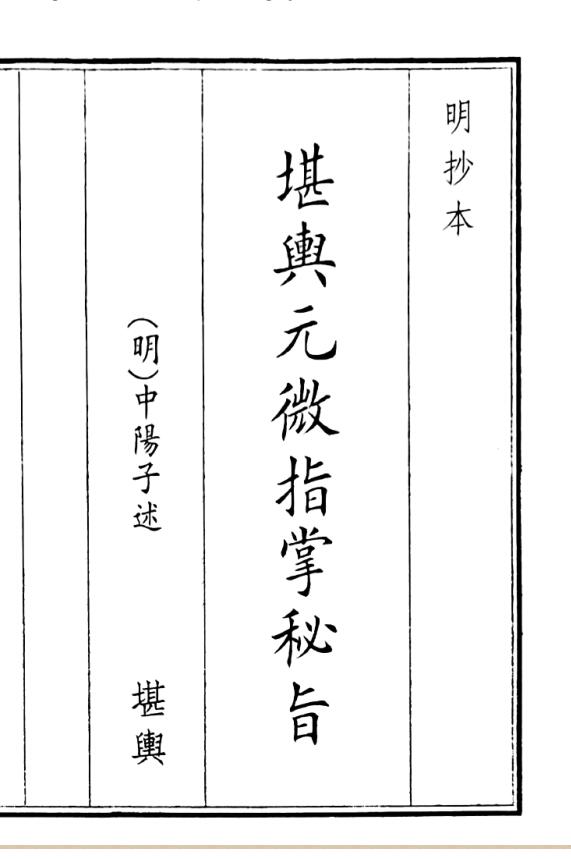 明抄本
堪輿元微指掌秘旨
（明）中陽子述
堪輿